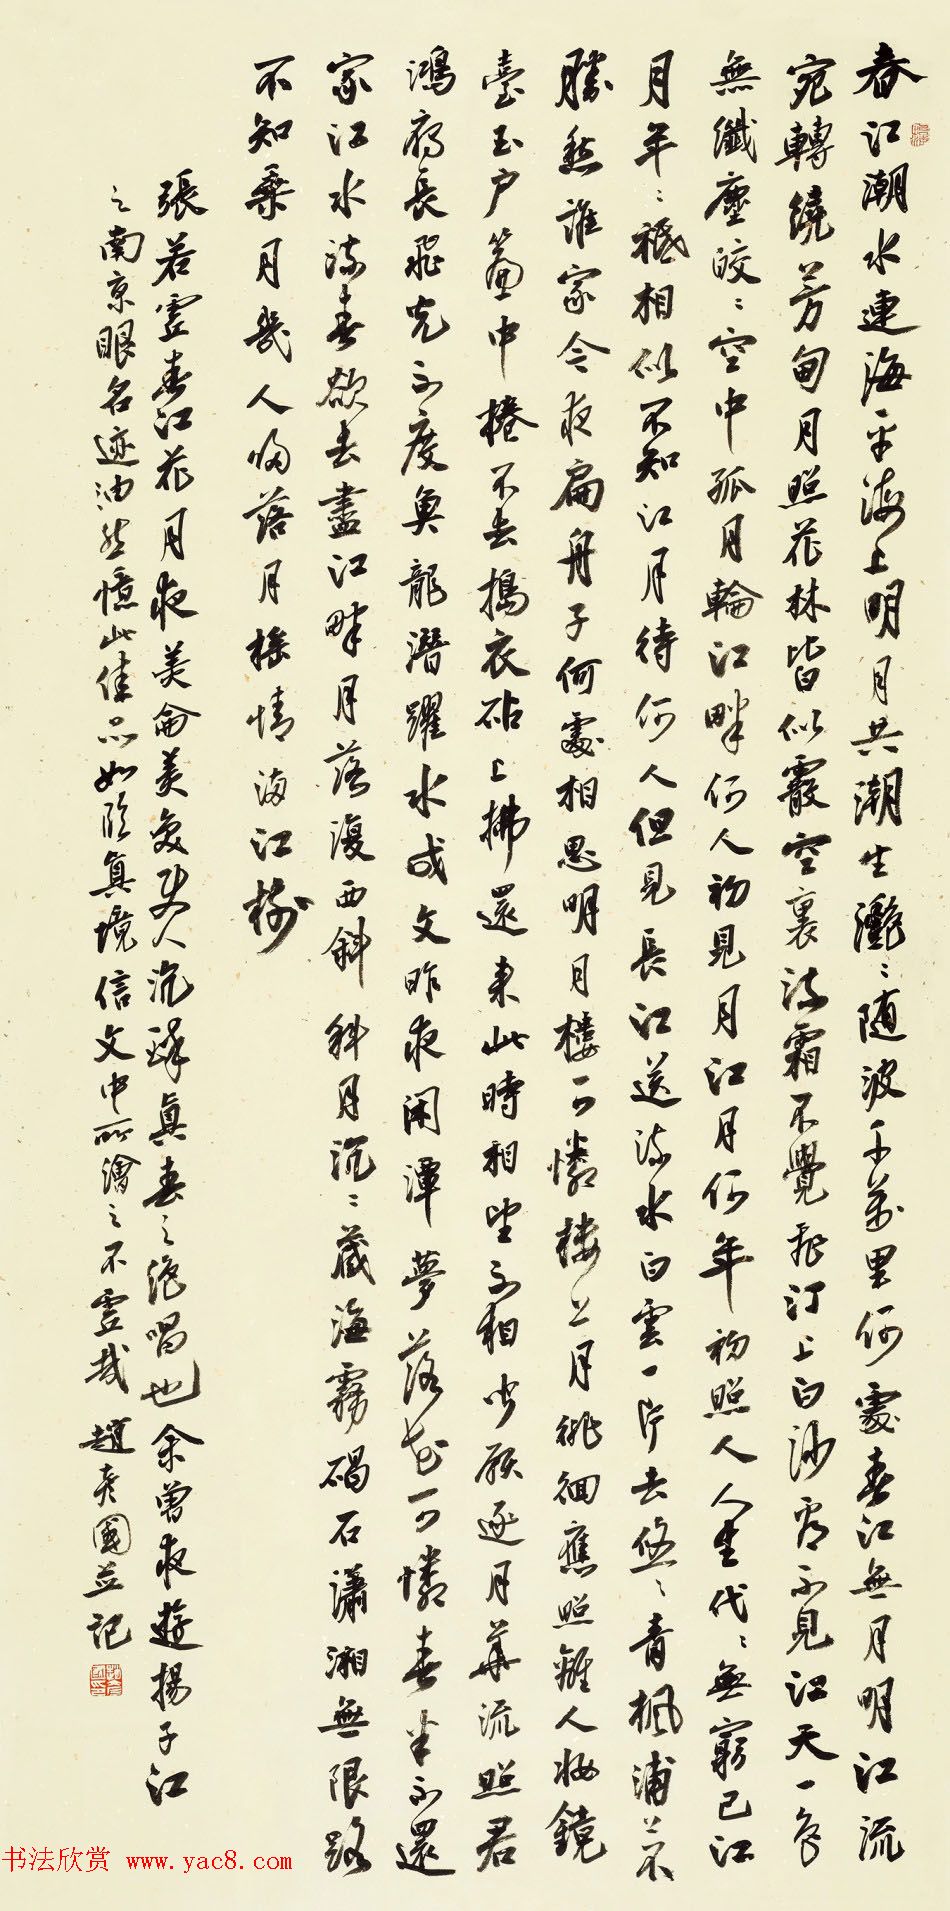 春江潮水連海平海上明月共潮生灩〻随波千萬里何處春江無月明江流
宛轉繞芳甸月照花林皆似霰空裏流霜不覺飛汀上白沙看不見江天一色
無纖塵皎〻空中孤月輪江畔何人初見月江月何年初照人人生代〻無窮已江
月年〻祗相似不知江月待何人但見長江送流水白雲一片去悠〻青楓浦上不
勝愁誰家今夜扁舟子何處相思明月樓可憐樓上月徘徊應照離人妝鏡
臺玉户簾中捲不去搗衣砧上拂還來此時相望不相聞願逐月華流照君
鴻雁長飛光不度魚龍潛躍水成文昨夜閑潭夢落花可憐春半不還
家江水流春欲去盡江畔月落復西斜斜月沉〻藏海霧碣石瀟湘無限路
不知乘月幾人歸落月摇情滿江樹
張若虚春江花月夜美侖美奂使人沉醉真春之絶唱也余曾夜遊揚子江
之南京眼名迹油然憶此佳品如臨真境信文中所繪之不虚哉 趙彦國并記
书法欣赏 www.yac8.com